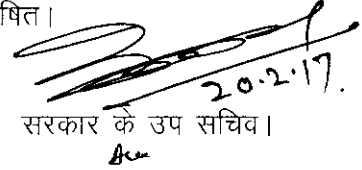 षित।
20.2.17.
सरकार के उप सचिव।